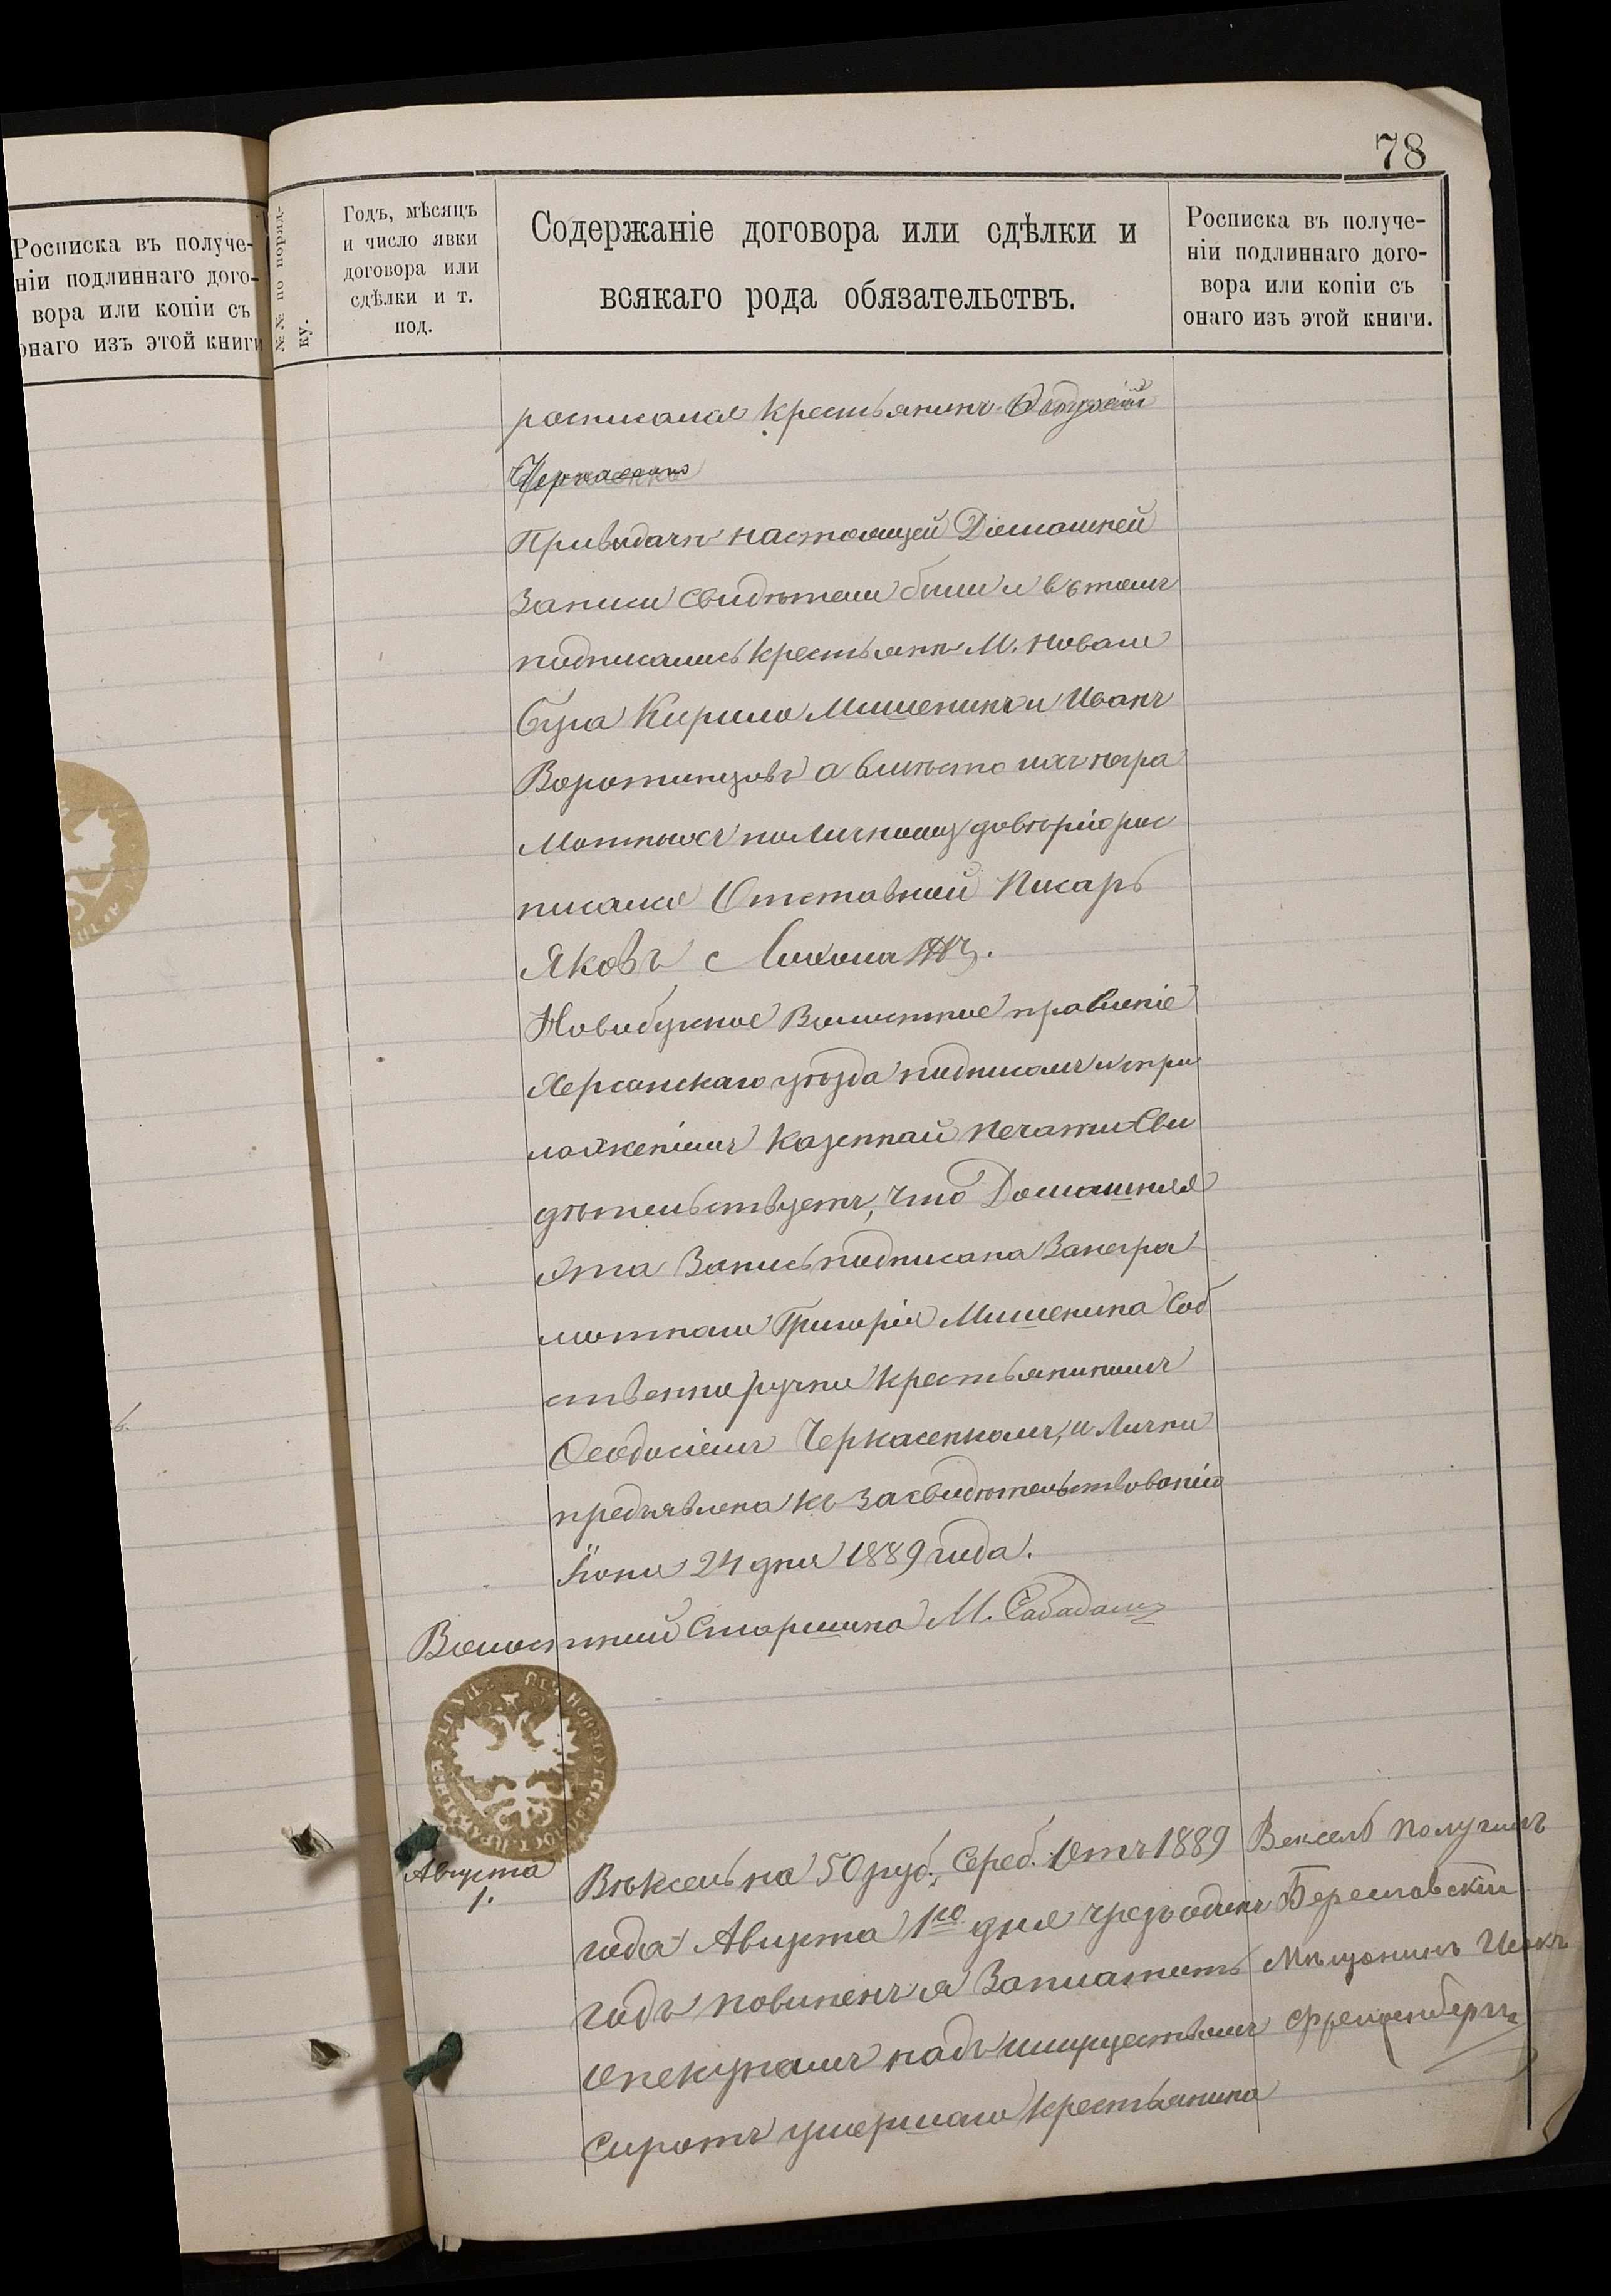 78
Росписка въ получе-
ніи подлиннаго дого-
вора или копіи съ
онаго изъ этой книги
№№ по поряд-
ку.
Годъ, мѣсяцъ
и число явки
договора или
сдѣлки и т.
под.
Содержаніе договора или сдѣлки и
всякаго рода обязательствъ.
Росписка въ получе-
ніи подлиннаго дого-
вора или копіи съ
онаго изъ этой книги.
росписался Крестьянинъ
Черкасенко
При выдачѣ настоящей Домашней
Записи Свидѣтели были и въ томъ
подписались Крестьяне М. Новаго
Буга Кирило Мишенинъ и Иванъ
Воротинцовъ а вмѣсто ихъ негра
мотныхъ по личному довѣрію рос
писался Отставной Писарь
Яковъ
Новобугское Волостное правленіе
Херсонскаго уѣзда подписомъ и при
ложеніемъ Казенной печати Сви
дѣтельствуетъ, что Домашняя
эта Запись подписана За негра
мотнаго Григорія Мишенина Соб
ственноручно Крестьяниномъ
Ѳеодосіемъ Черкасенкомъ, и Лично
предъявлена къ Засвидѣтельствованію
Іюня 24 дня 1889 года.
Волостной Старшина М.
Августа
1.
Вѣксель на 50 руб. Сереб. Отъ 1889
года Августа 1го дня чрезъ одинъ
годъ повиненъ я Заплатить
опекунамъ надъ имуществомъ
Сиротъ умершаго Крестьянина
Вексель получилъ
Бериславскій
Мѣщанинъ Исакъ